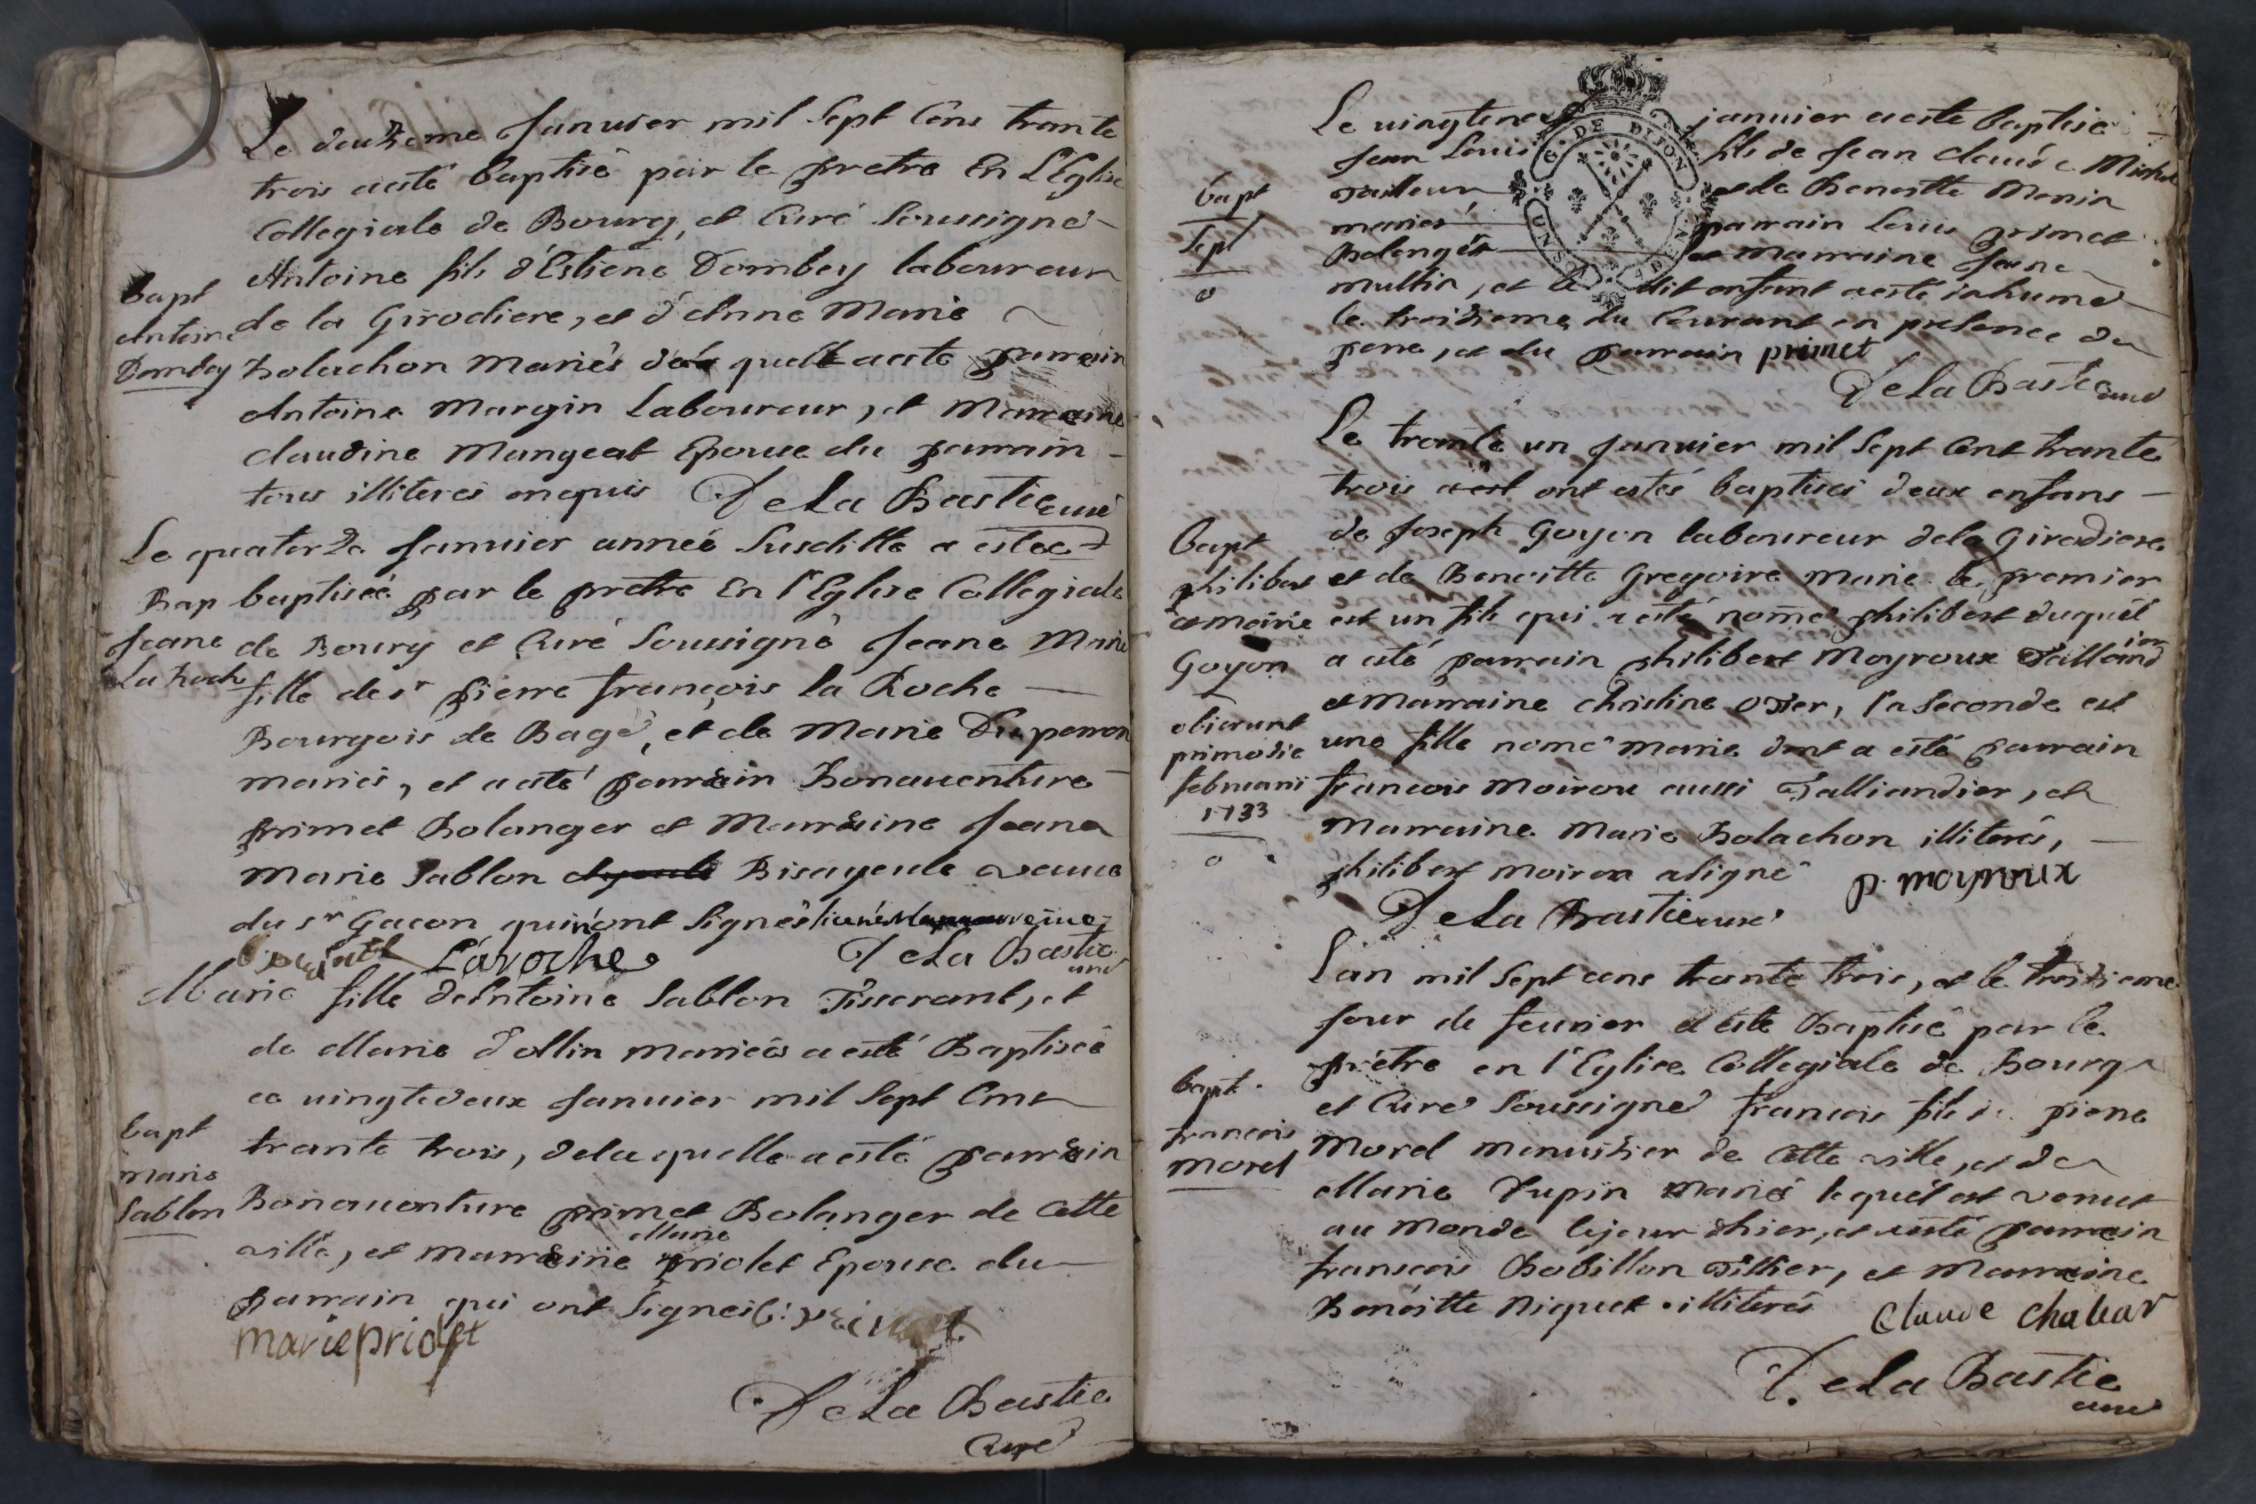 Le deuxieme Januier mil Sept Cens trante
trois a esté baptisé par le pretre En L'Eglise
Collegiale de Bourg, et Curé Soussigné
Antoine fils d'Estiene Dombey laboureur
Bapt
Antoine
Dombey
de la Girodiere, et d'Anne Marie
Bolachon Mariés du quel a esté parrain
Antoine Margin Laboureur, et Marraine
Claudine Mangeat Epouse du parrain
tous illiteres enquis De La Bastie curé
Le quatorze Januier anneé Susditte a estee
Bap
Jeane
La Roche
baptiseé par le pretre En l'Eglise Collegiale
de Bourg et Curé Soussigné Jeane Marie
fille de sr pierre françois la Roche
Bourgois de Bagé, et de Marie Duperron
mariés, et a esté parrain Bonauenture
primet Bolanger et Marraine Jeane
Marie Sablon Bisayeule veuue
du sr Gacon qui n'ont Signés
Laroche De La Bastie curé
Marie fille d'Antoine Sablon Tisserant, et
de Marie d'ollin mariés a esté Baptiseé
ce uingtedeux Januier mil Sept Cens
Bapt
Marie
Sablon
trante trois, de la quelle a esté parrain
Bonauenture primet Bolanger de Cette
ville, et marraine Marie priolet Epouse du
parrain qui ont Signeś b: primet
marie priolet
De La Bastie
Curé
Le uingteneuf januier a esté baptisé
Jean Louis fils de Jean Claude Michel
Tailleur et de Benoitte Monin
Bapt
Sept
0
mariés parrain Louis primet
Bolenger et marraine Jeane
multin, et le dit enfant a esté inhumé
le troisieme du Courant en presence du
pere, et du parrain primet
De La Bastie curé
G. DE DIJON
Le trante un Januier mil Sept Cent trante
trois ont estés baptisés deux enfans
de Joseph Goyon laboureur de la Girodiere
Bapt
philibert
et Marie
Goyon
obierunt
prima die
februarii
1733
0
et de Benoitte Gregoire Marié le premier
est un fils qui a esté nomé philibert duquel
a esté parrain philibert Moyroux Tailland ier
et Marraine Christine oTier, la Seconde est
une fille nomé Marie dont a esté parrain
francois Moiroux aussi Talliandier, et
Marraine Marie Bolachon illiterés,
philibert moiroux a signé p. moyroux
De La Bastie curé
L'an mil Sept cens trante trois, et le troisieme
Jour de feurier a esté Baptisé par le
prêtre en l'Eglise Collegiale de Bourg
Bapt.
francois
Morel
et Curé Soussigné francois fils de piere
Morel menuisier de Cette ville, et de
Marie Dupin mariés lequel est venut
au Monde le jour d'hier, et a esté parrain
francois Bobillon Tissier, et Marraine
Benoitte Niquet illiterés Claude Chabar
De La Bastie
curé